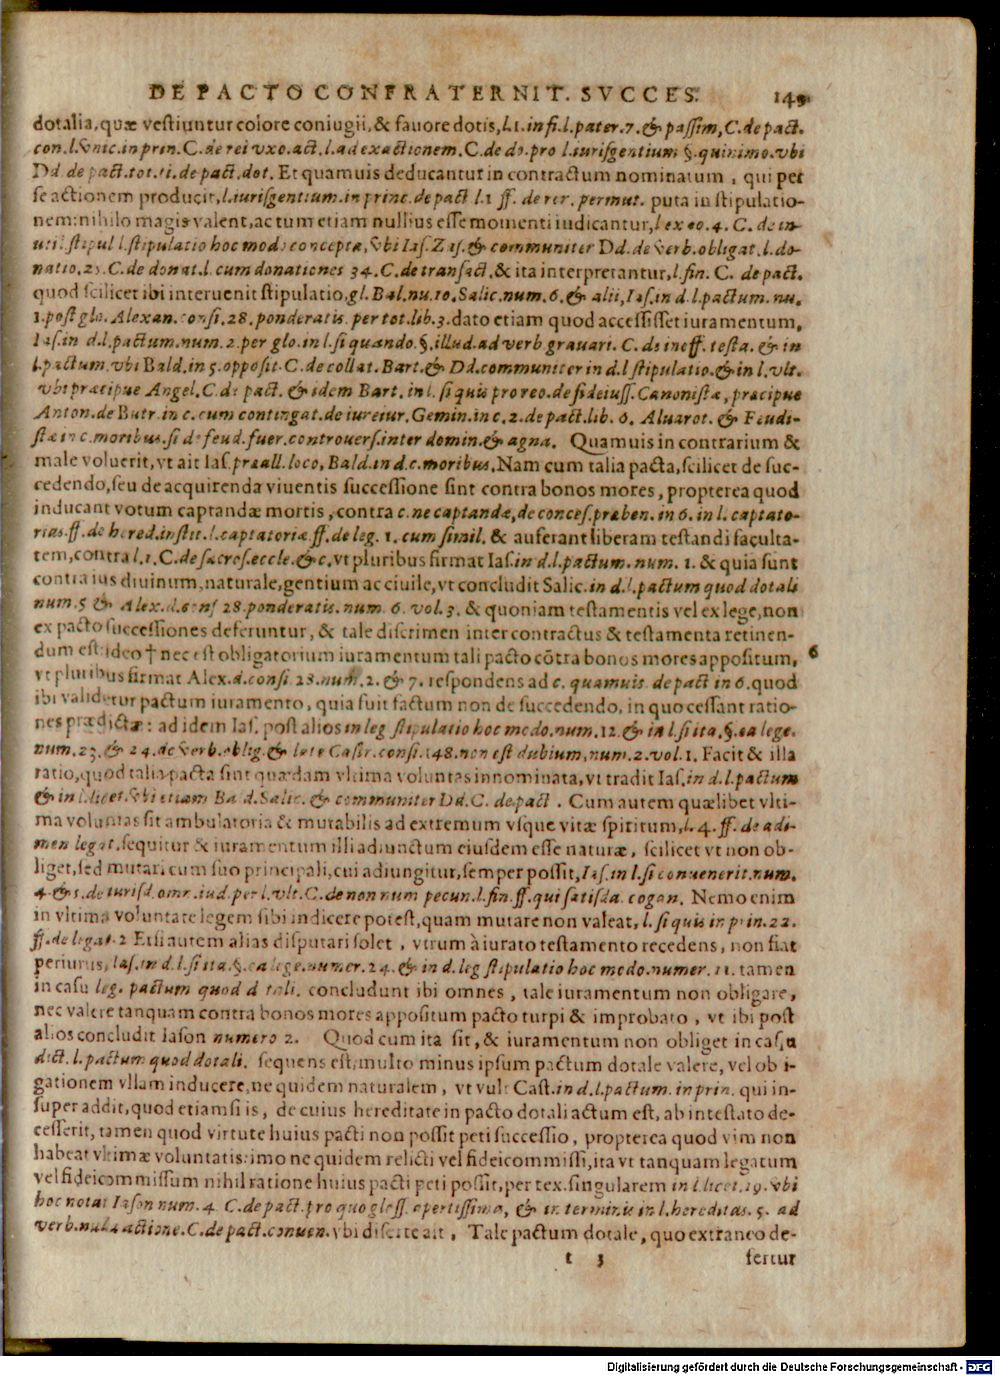 DE PACTO CONFRATERNIT. SVCCES. 149
dotalia, quæ vestiuntur colore coniugii, & fauore dotis, l. 1. in fi. l. pater. 7. & passim, C. de pact.
con. l. vnic. in prin. C. de rei vxo. act. l. ad exactionem. C. de do. pro l. iurisgentium §. quinimo. vbi
Dd. de pact. tot. ti. de pact. dot. Et quamuis deducantur in contractum nominatum, qui per
se actionem producit, l. iurisgentium. in princ. de pact l. 1 ff. de rer. permut. puta in stipulatio-
nem: nihilo magis valent, ac tum etiam nullius esse momenti iudicantur, l. ex eo. 4. C. de in-
util. stipul l. stipulatio hoc modo concepta, vbi Ias. Zas. & communiter Dd. de verb. obligat. l. do-
natio. 21. C. de donat. l. cum donationes 34. C. de transact. & ita interpretantur, l. fin. C. de pact.
quod scilicet ibi interuenit stipulatio, gl. Bal. nu. 10. Salic. num. 6. & alii, Ias. in d. l. pactum. nu.
1. post glo. Alexan. consi. 28. ponderatis. per tot. lib. 3. dato etiam quod accessisset iuramentum,
Ias. in d. l. pactum. num. 2. per glo. in l. si quando. §. illud. ad verb grauari. C. de ineff. testa. & in
l. pactum. vbi Bald. in 5. opposit. C. de collat. Bart. & Dd. communiter in d. l stipulatio. & in l. vlt.
vbi præcipue Angel. C. de pact. & idem Bart. in l. si quis pro reo. de fideiuss. Canonistæ, præcipue
Anton. de Butr. in c. cum contingat. de iureiur. Gemin. in c. 2. de pact. lib. 6. Aluarot. & Feudi-
stæ in c. moribus. si de feud. fuer. controuers. inter domin. & agna. Quamuis in contrarium &
male voluerit, vt ait Ias. præall. loco, Bald. in d. c. moribus. Nam cum talia pacta, scilicet de suc-
cedendo, seu de acquirenda viuentis successione sint contra bonos mores, propterea quod
inducant votum captandæ mortis, contra c. ne captandæ, de conces. præben. in 6. in l. captato-
rias. ff. de hered. instit. l. captatoriæ ff. de leg. 1. cum simil. & auferant liberam testandi faculta-
tem, contra l. 1. C. de sacros. eccle. & c. vt pluribus firmat Ias. in d. l. pactum. num. 1. & quia sunt
contra ius diuinum, naturale, gentium ac ciuile, vt concludit Salic. in d. l. pactum quod dotali
num. 5 & Alex. d. consi 28. ponderatis. num. 6. vol. 3. & quoniam testamentis vel ex lege, non
ex pacto successiones deferuntur, & tale discrimen inter contractus & testamenta retinen-
dum est: ideo † nec est obligatorium iuramentum tali pacto cōtra bonos mores appositum, 6
vt pluribus firmat Alex. d. consi 28. num. 2. & 7. respondens ad c. quamuis de pact in 6. quod
ibi validetur pactum iuramento, quia fuit factum non de succedendo, in quo cessant ratio-
nes prædictæ: ad idem Ias. post alios in leg stipulatio hoc modo. num. 12. & in l. si ita. §. ea lege.
num. 23. & 24. de verb. oblig. & late Castr. consi. 148. non est dubium, num. 2. vol. 1. Facit & illa
ratio, quod talia pacta sint quædam vltima voluntas innominata, vt tradit Ias. in d. l. pactum
& in l. licet. vbi etiam Bald. Salic. & communiter Dd. C. de pact. Cum autem quælibet vlti-
ma voluntas sit ambulatoria & mutabilis ad extremum vsque vitæ spiritum, l. 4. ff. de adi-
men legat. sequitur & iuramentum illi adiunctum eiusdem esse naturæ, scilicet vt non ob-
liget, sed mutari cum suo principali, cui adiungitur, semper possit, Ias. in l. si conuenerit. num.
4. & 5. de iurisd. omn. iud. per l. vlt. C. de non num pecun. l. fin. ff. qui satisda. cogan. Nemo enim
in vltima voluntate legem sibi indicere potest, quam mutare non valeat, l. si quis in prin. 22.
ff. de legat. 2 Etsi autem alias disputari solet, vtrum à iurato testamento recedens, non fiat
periurus, Ias. in d. l. si ita. §. ea lege. numer. 24. & in d. leg stipulatio hoc modo. numer. 11. tamen
in casu leg. pactum quod dotali. concludunt ibi omnes, tale iuramentum non obligare,
nec valere tanquam contra bonos mores appositum pacto turpi & improbato, vt ibi post
alios concludit Iason numero 2. Quod cum ita sit, & iuramentum non obliget in casu
dict. l. pactum quod dotali. sequens est, multo minus ipsum pactum dotale valere, vel obli-
gationem vllam inducere, ne quidem naturalem, vt vult Cast. in d. l. pactum. in prin. qui in-
super addit, quod etiamsi is, de cuius hereditate in pacto dotali actum est, ab intestato de-
cesserit, tamen quod virtute huius pacti non possit peti successio, propterea quod vim non
habeat vltimæ voluntatis: imo ne quidem relicti vel fideicommissi, ita vt tanquam legatum
vel fideicommissum nihil ratione huius pacti peti possit, per tex. singularem in l. licet. 19. vbi
hoc notat Iason num. 4 C. de pact. pro quo gloss. apertissima, & in terminis in l. hereditas. 5. ad
verb. nulla actione. C. de pact. conuen. vbi diserte ait, Tale pactum dotale, quo extraneo de-
t 3 fertur
Digitalisierung gefördert durch die Deutsche Forschungsgemeinschaft - DFG